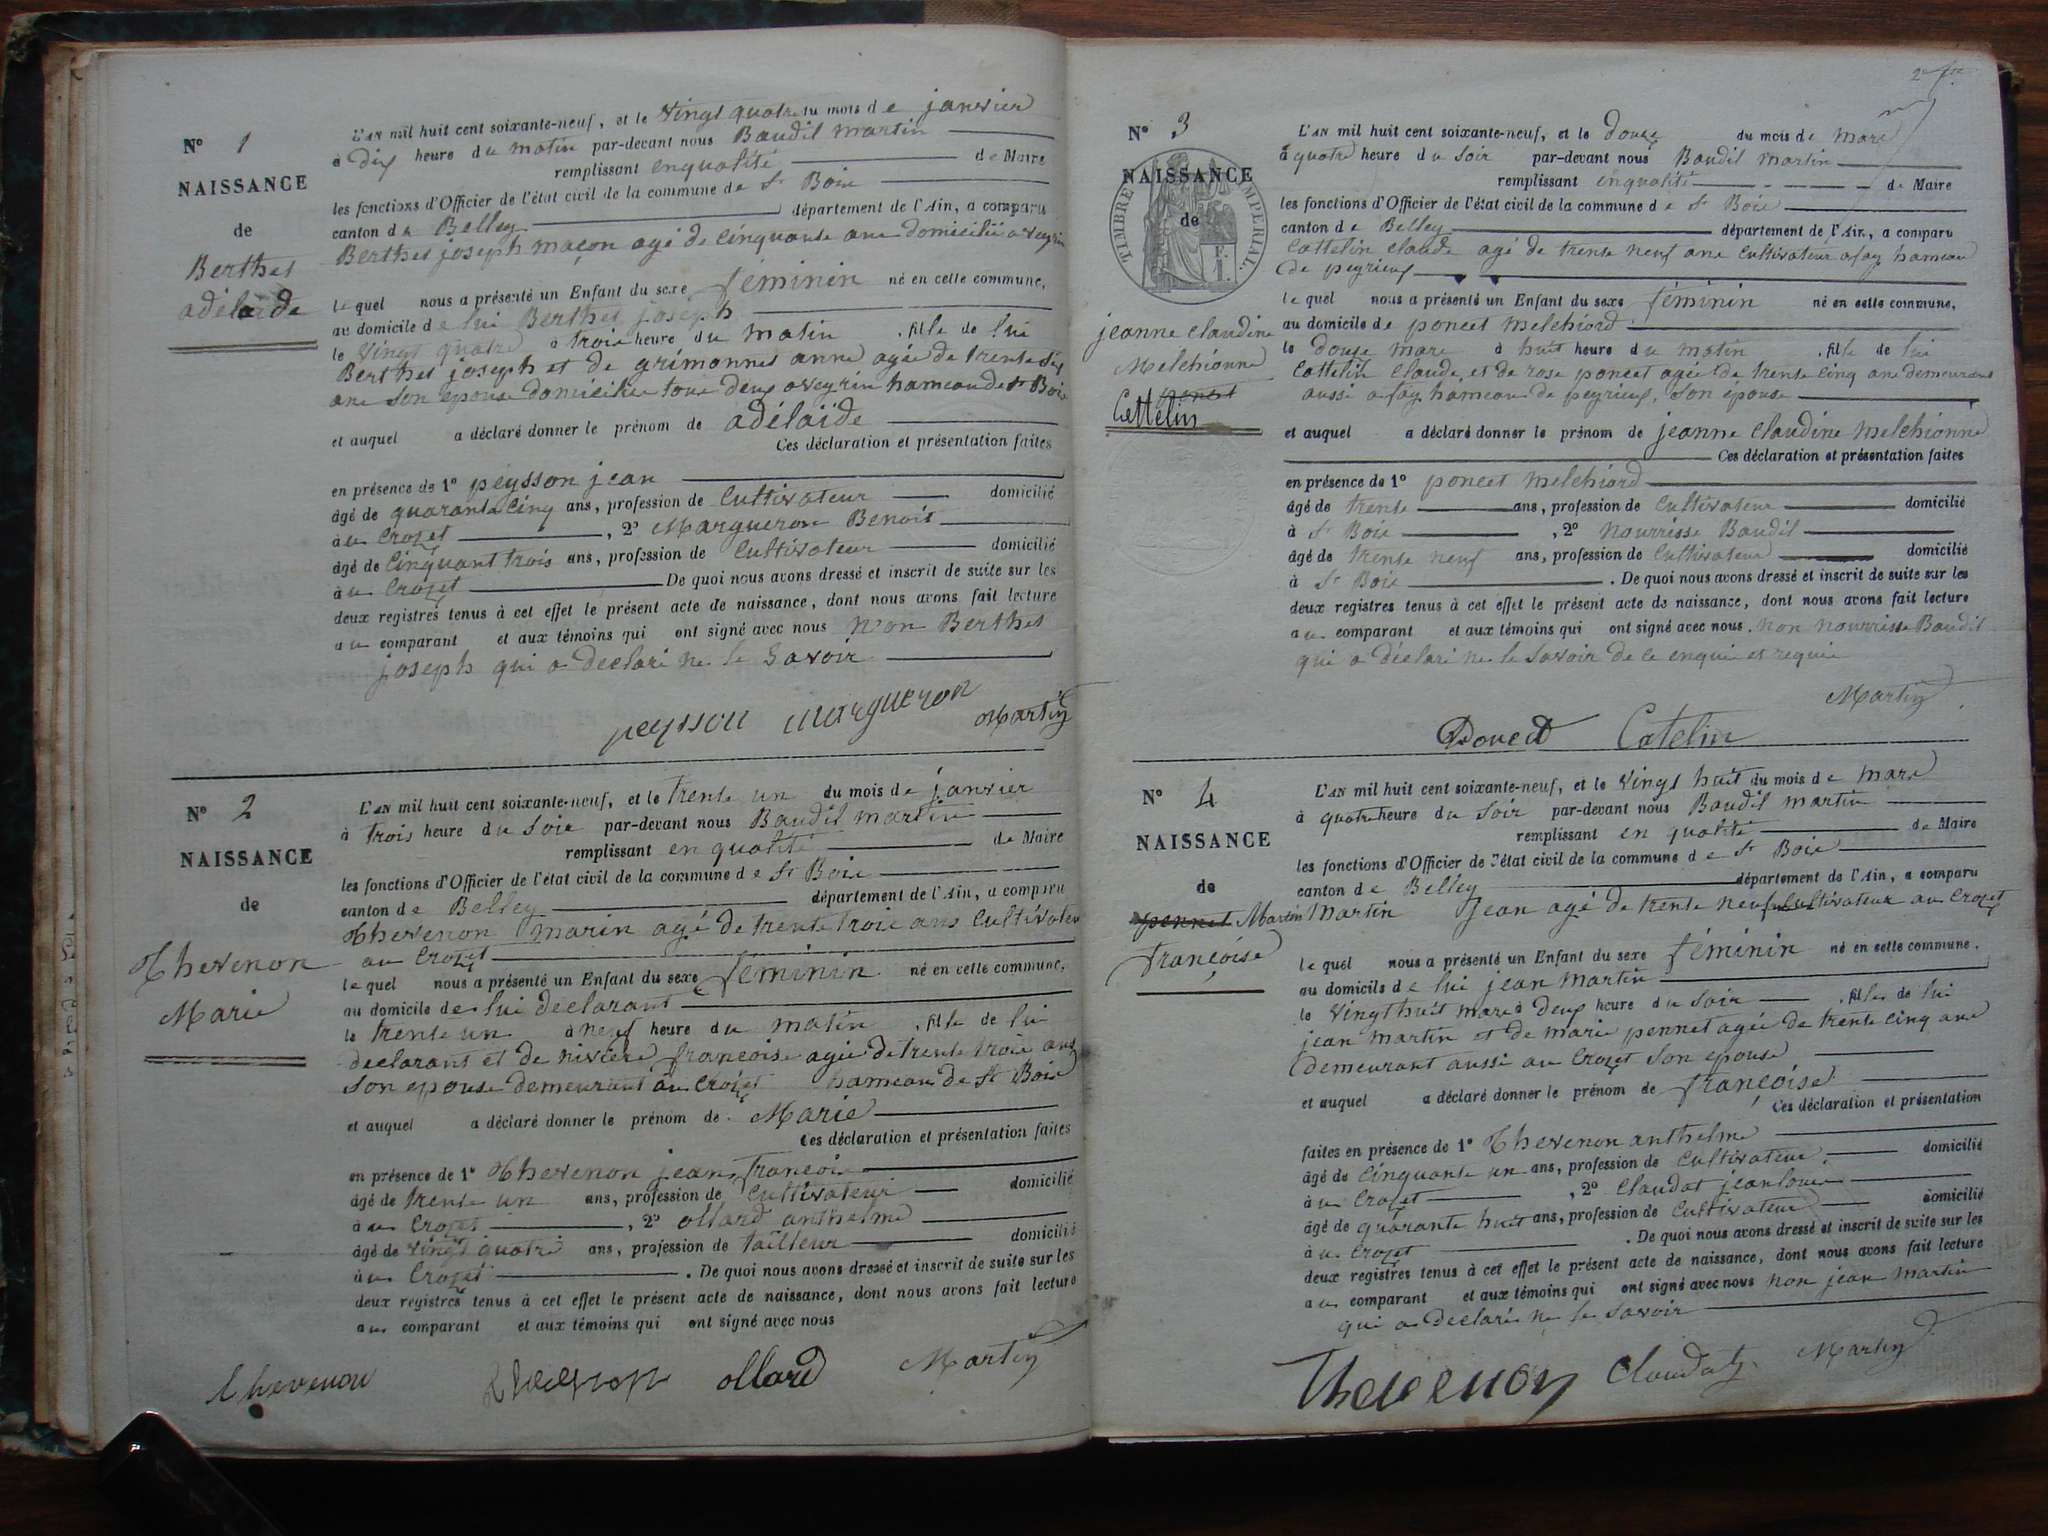 N° 1
NAISSANCE
de
Berthet
adélaïde
L'AN mil huit cent soixante-neuf, et le vingt quatre du mois de janvier
à dix heure du matin par-devant nous Baudil martin
remplissant enqualité de Maire
les fonctions d'Officier de l'état civil de la commune de St Boie
canton de Belley département de l'Ain, a comparu
Berthet joseph maçon agé de cinquante ans domicilié a veyrin
le quel nous a présenté un Enfant du sexe féminin né en cette commune,
au domicile de lui Berthet joseph
le vingt quatre à trois heure du matin , fille de lui
Berthet joseph et de grimonnet anne agée de trente six
ans son epouse domiciliée tous deux a veyrin hameau de st Boie
et auquel a déclaré donner le prénom de adélaïde
Ces déclaration et présentation faites
en présence de 1° peysson jean
âgé de quarante cinq ans, profession de cultivateur domicilié
à u crozet , 2° Margueron Benoit
âgé de cinquant trois ans, profession de cultivateur domicilié
à u crozet De quoi nous avons dressé et inscrit de suite sur les
deux registres tenus à cet effet le présent acte de naissance, dont nous avons fait lecture
au comparant et aux témoins qui ont signé avec nous non Berthet
joseph qui a déclaré ne le savoir
peysson margueron Martin
N° 2
NAISSANCE
de
Thevenon
Marie
L'AN mil huit cent soixante-neuf, et le trente un du mois de janvier
à trois heure du soir par-devant nous Baudil martin
remplissant en qualité de Maire
les fonctions d'Officier de l'état civil de la commune de St Boie
canton de Belley département de l'Ain, a comparu
Thevenon marin agé de trente trois ans cultivateur
au crozet
le quel nous a présenté un Enfant du sexe féminin né en cette commune,
au domicile de lui declarant
le trente un à neuf heure du matin , fille de lui
declarant et de riviere françoise agée de trente trois ans
son epouse demeurant au crozet hameau de St Boie
et auquel a déclaré donner le prénom de Marie
Ces déclaration et présentation faites
en présence de 1° Thevenon jean françois
âgé de trente un ans, profession de cultivateur domicilié
à u crozet , 2° ollard anthelme
âgé de vingt quatre ans, profession de tailleur domicilié
à u crozet . De quoi nous avons dressé et inscrit de suite sur les
deux registres tenus à cet effet le présent acte de naissance, dont nous avons fait lecture
au comparant et aux témoins qui ont signé avec nous
thevenon thevenon ollard Martin
N° 3
NAISSANCE
de
TIMBRE IMPERIAL.
jeanne claudine
Melchionne
poncet
Cattelin
L'AN mil huit cent soixante-neuf, et le douze du mois de mars
à quatre heure du soir par-devant nous Baudil martin
remplissant enqualité de Maire
les fonctions d'Officier de l'état civil de la commune de St Boie
canton de Belley département de l'Ain, a comparu
Cattelin claude agé de trente neuf ans cultivateur a fay hameau
de peyrieux
le quel nous a présenté un Enfant du sexe féminin né en cette commune,
au domicile de poncet melchiord
le douze mars à huit heure du matin , fille de lui
Cattelin claude et de rose poncet agée de trente cinq ans demeurant
aussi a fay hameau de peyrieux, son épouse
et auquel a déclaré donner le prénom de jeanne claudine melchionne
Ces déclaration et présentation faites
en présence de 1° poncet melchiord
âgé de trente ans, profession de cultivateur domicilié
à St Boie , 2° nourrisse Baudil
âgé de trente neuf ans, profession de cultivateur domicilié
à St Boie . De quoi nous avons dressé et inscrit de suite sur les
deux registres tenus à cet effet le présent acte de naissance, dont nous avons fait lecture
au comparant et aux témoins qui ont signé avec nous. non nourrisse Baudil
qui a déclaré ne le savoir de ce enquis et requis
Martin
Poncet Catelin
N° 4
NAISSANCE
de
pennet Martin
françoise
L'AN mil huit cent soixante-neuf, et le vingt huit du mois de mars
à quatre heure du soir par-devant nous Baudil martin
remplissant en qualité de Maire
les fonctions d'Officier de l'état civil de la commune de St Boie
canton de Belley département de l'Ain, a comparu
Martin jean agé de trente neuf cultivateur au crozet
le quel nous a présenté un Enfant du sexe féminin né en cette commune.
au domicile de lui jean martin
le vingt huit mars à deux heure du soir , fille de lui
jean martin et de marie pennet agée de trente cinq ans
demeurant aussi au crozet son epouse
et auquel a déclaré donner le prénom de françoise
Ces déclaration et présentation
faites en présence de 1° Thevenon anthelme
âgé de cinquante un ans, profession de cultivateur domicilié
à u crozet , 2° claudat jean louis
âgé de quarante huit ans, profession de cultivateur domicilié
à u crozet . De quoi nous avons dressé et inscrit de suite sur les
deux registres tenus à cet effet le présent acte de naissance, dont nous avons fait lecture
au comparant et aux témoins qui ont signé avec nous non jean martin
qui a déclaré ne le savoir
Thevenon Claudat Martin